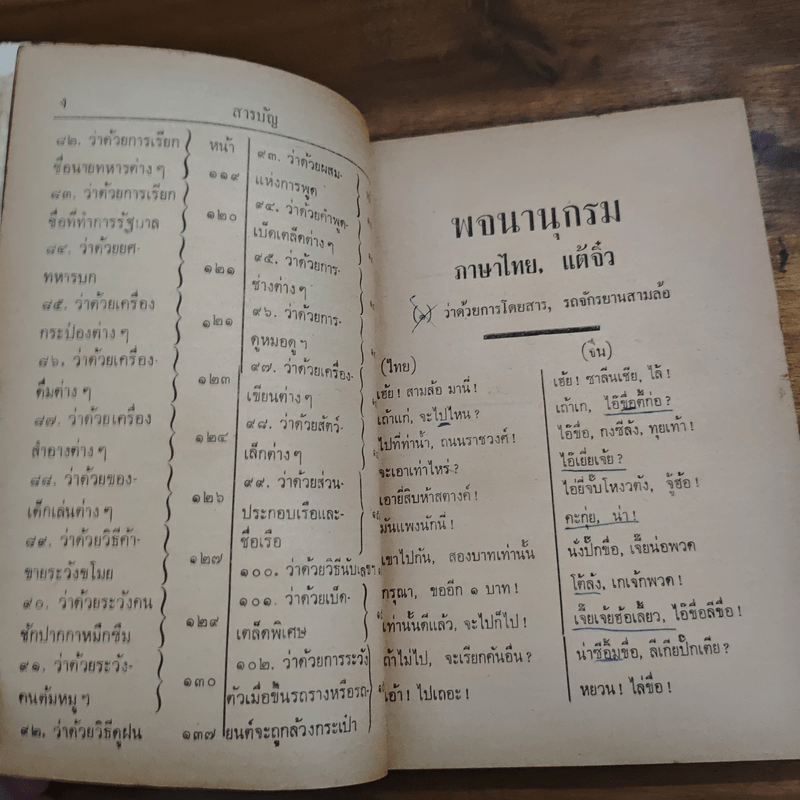 ง
สารบัญ
๘๒. ว่าด้วยการเรียก
ชื่อนายทหารต่าง ๆ
๘๓. ว่าด้วยการเรียก
ชื่อที่ทำการรัฐบาล
๘๔. ว่าด้วยยศ-
ทหารบก
๘๕. ว่าด้วยเครื่อง
กระป๋องต่าง ๆ
๘๖. ว่าด้วยเครื่อง-
ดื่มต่าง ๆ
๘๗. ว่าด้วยเครื่อง
สำอางต่าง ๆ
๘๘. ว่าด้วยของ-
เด็กเล่นต่าง ๆ
๘๙. ว่าด้วยวิธีค้า-
ขายระวังขโมย
๙๐. ว่าด้วยระวังคน
ชักปากกาหมึกซึม
๙๑. ว่าด้วยระวัง-
คนต้มหมู ๆ
๙๒. ว่าด้วยวิธีดูฝน
หน้า
๑๑๙
๑๒๐
๑๒๑
๑๒๑
๑๒๓
๑๒๔
๑๒๖
๑๒๗
๑๒๙
๑๓๐
๑๓๗
๙๓. ว่าด้วยผสม-
แห่งการพูด
๙๔. ว่าด้วยคำพูด-
เบ็ดเตล็ดต่าง ๆ
๙๕. ว่าด้วยการ-
ช่างต่าง ๆ
๙๖. ว่าด้วยการ-
ดูหมอดู ๆ
๙๗. ว่าด้วยเครื่อง-
เขียนต่าง ๆ
๙๘. ว่าด้วยสัตว์-
เล็กต่าง ๆ
๙๙. ว่าด้วยส่วน-
ประกอบเรือและ-
ชื่อเรือ
๑๐๐. ว่าด้วยวิธีนับเลข
๑๐๑. ว่าด้วยเบ็ด-
เตล็ดพิเศษ
๑๐๒. ว่าด้วยการระวัง
ตัวเมื่อขึ้นรถรางหรือรถ-
ยนต์จะถูกล้วงกระเป๋า
พจนานุกรม
ภาษาไทย, แต้จิ๋ว
(๑) ว่าด้วยการโดยสาร, รถจักรยานสามล้อ
(ไทย)
เฮ้ย! สามล้อ มานี่!
เถ้าแก่, จะไปไหน?
ไปที่ท่าน้ำ, ถนนราชวงศ์!
จะเอาเท่าไหร่?
เอายี่สิบห้าสตางค์!
มันแพงนักนี่!
เขาไปกัน, สองบาทเท่านั้น
กรุณา, ขออีก ๑ บาท!
เท่านั้นดีแล้ว, จะไปก็ไป!
ถ้าไม่ไป, จะเรียกคันอื่น?
เอ้า! ไปเถอะ!
(จีน)
เฮ้ย! ซาลึนเชีย, ไล้!
เถ้าเก, ไอ๊ขื่อตี้ก่อ?
ไอ๊ขื่อ, กงซีล้ง, ทุยเท้า!
ไอ๊เยี่ยเจ้ย?
ไอ๊ยี่จั๊บโหงวตัง, จู้ฮ้อ!
คะกุ่ย, น่า!
นั่งปั๊กขื่อ, เจี๊ยน่อพวด
โต้ลัง, เกเจ้กพวด!
เจี๊ยเจ้ยฮ้อเลี้ยว, ไอ๊ขื่อลีขื่อ!
น่าซีอ้มขื่อ, ลีเกียปั๊กเตีย?
หยวน! ไล่ขื่อ!